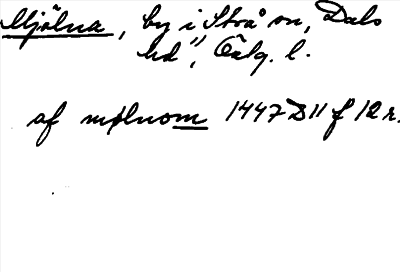 Mjölna, by i Strå sn, Dals
hd", Ög. l.
af mølnom 1447 D 11 f 12 r.